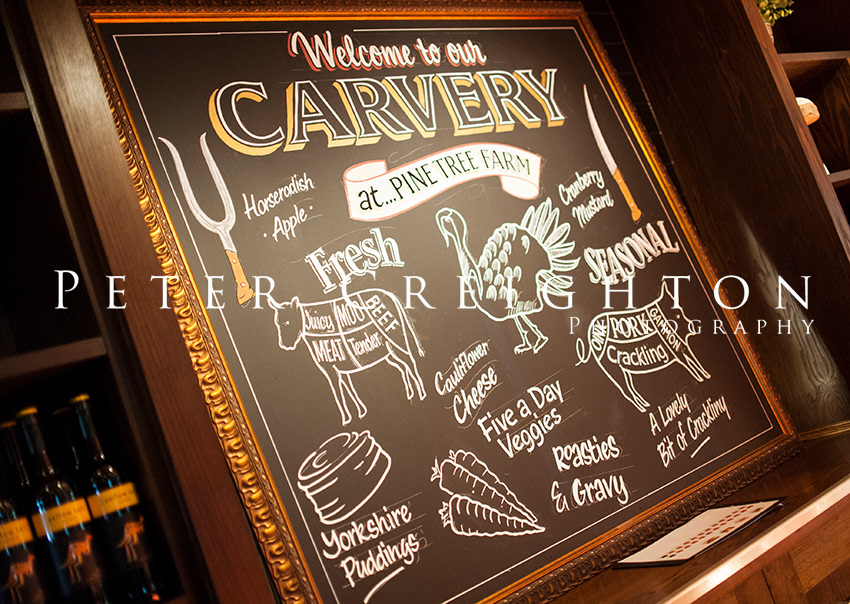 Welcome to our
CARVERY
at... PINE TREE FARM
Horseradish
• Apple •
Cranberry
Mustard
Fresh
SEASONAL
PETER CREIGHTON
PHOTOGRAPHY
Juicy MOO BEEF
MEAT Tender
OINK PORK GAMMON
Crackling
Cauliflower
Cheese
Five a Day
Veggies
A Lovely
Bit of Crackling
Roasties
& Gravy
Yorkshire
Puddings